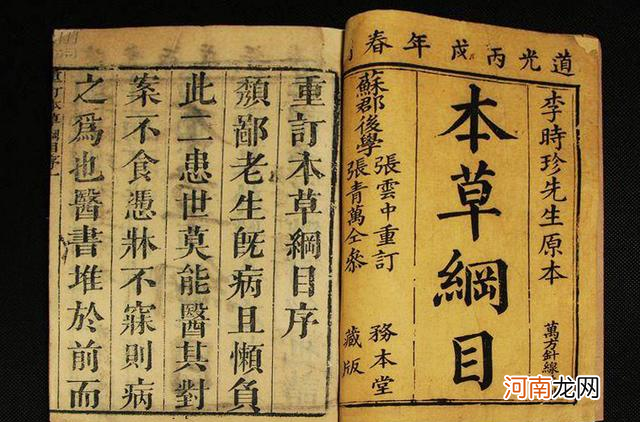 道光丙戌年春
李時珍先生原本
本草綱目
萬方針線
蘇郡後學
張雲中重訂
張青萬仝參
務本堂
藏版
重訂本草綱目序
頽鄙老生旣病且懶負
此二患世莫能醫其對
案不食憑牀不寐則病
之爲也醫書堆於前而
河南龙网